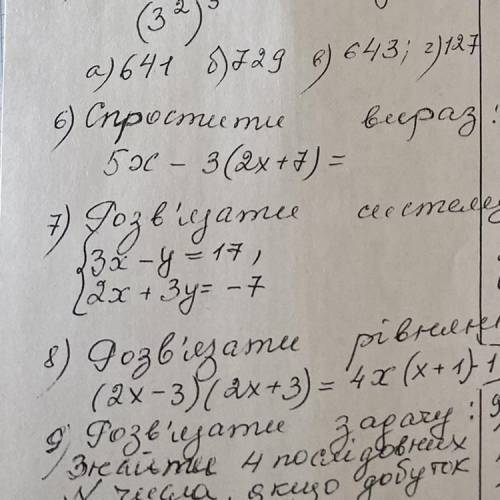 (3²)³
а) 641 б) 729 в) 643; г) 127
6) Спростити вираз:
5x - 3(2x+7) =
7) Розв'язати
{3x - y = 17,
{2x + 3y = -7
8) Розв'язати
(2x-3)(2x+3) = 4x(x+1)-1
9) Розв'язати задачу:
Знайти 4 послідовних
N числа, якщо добуток